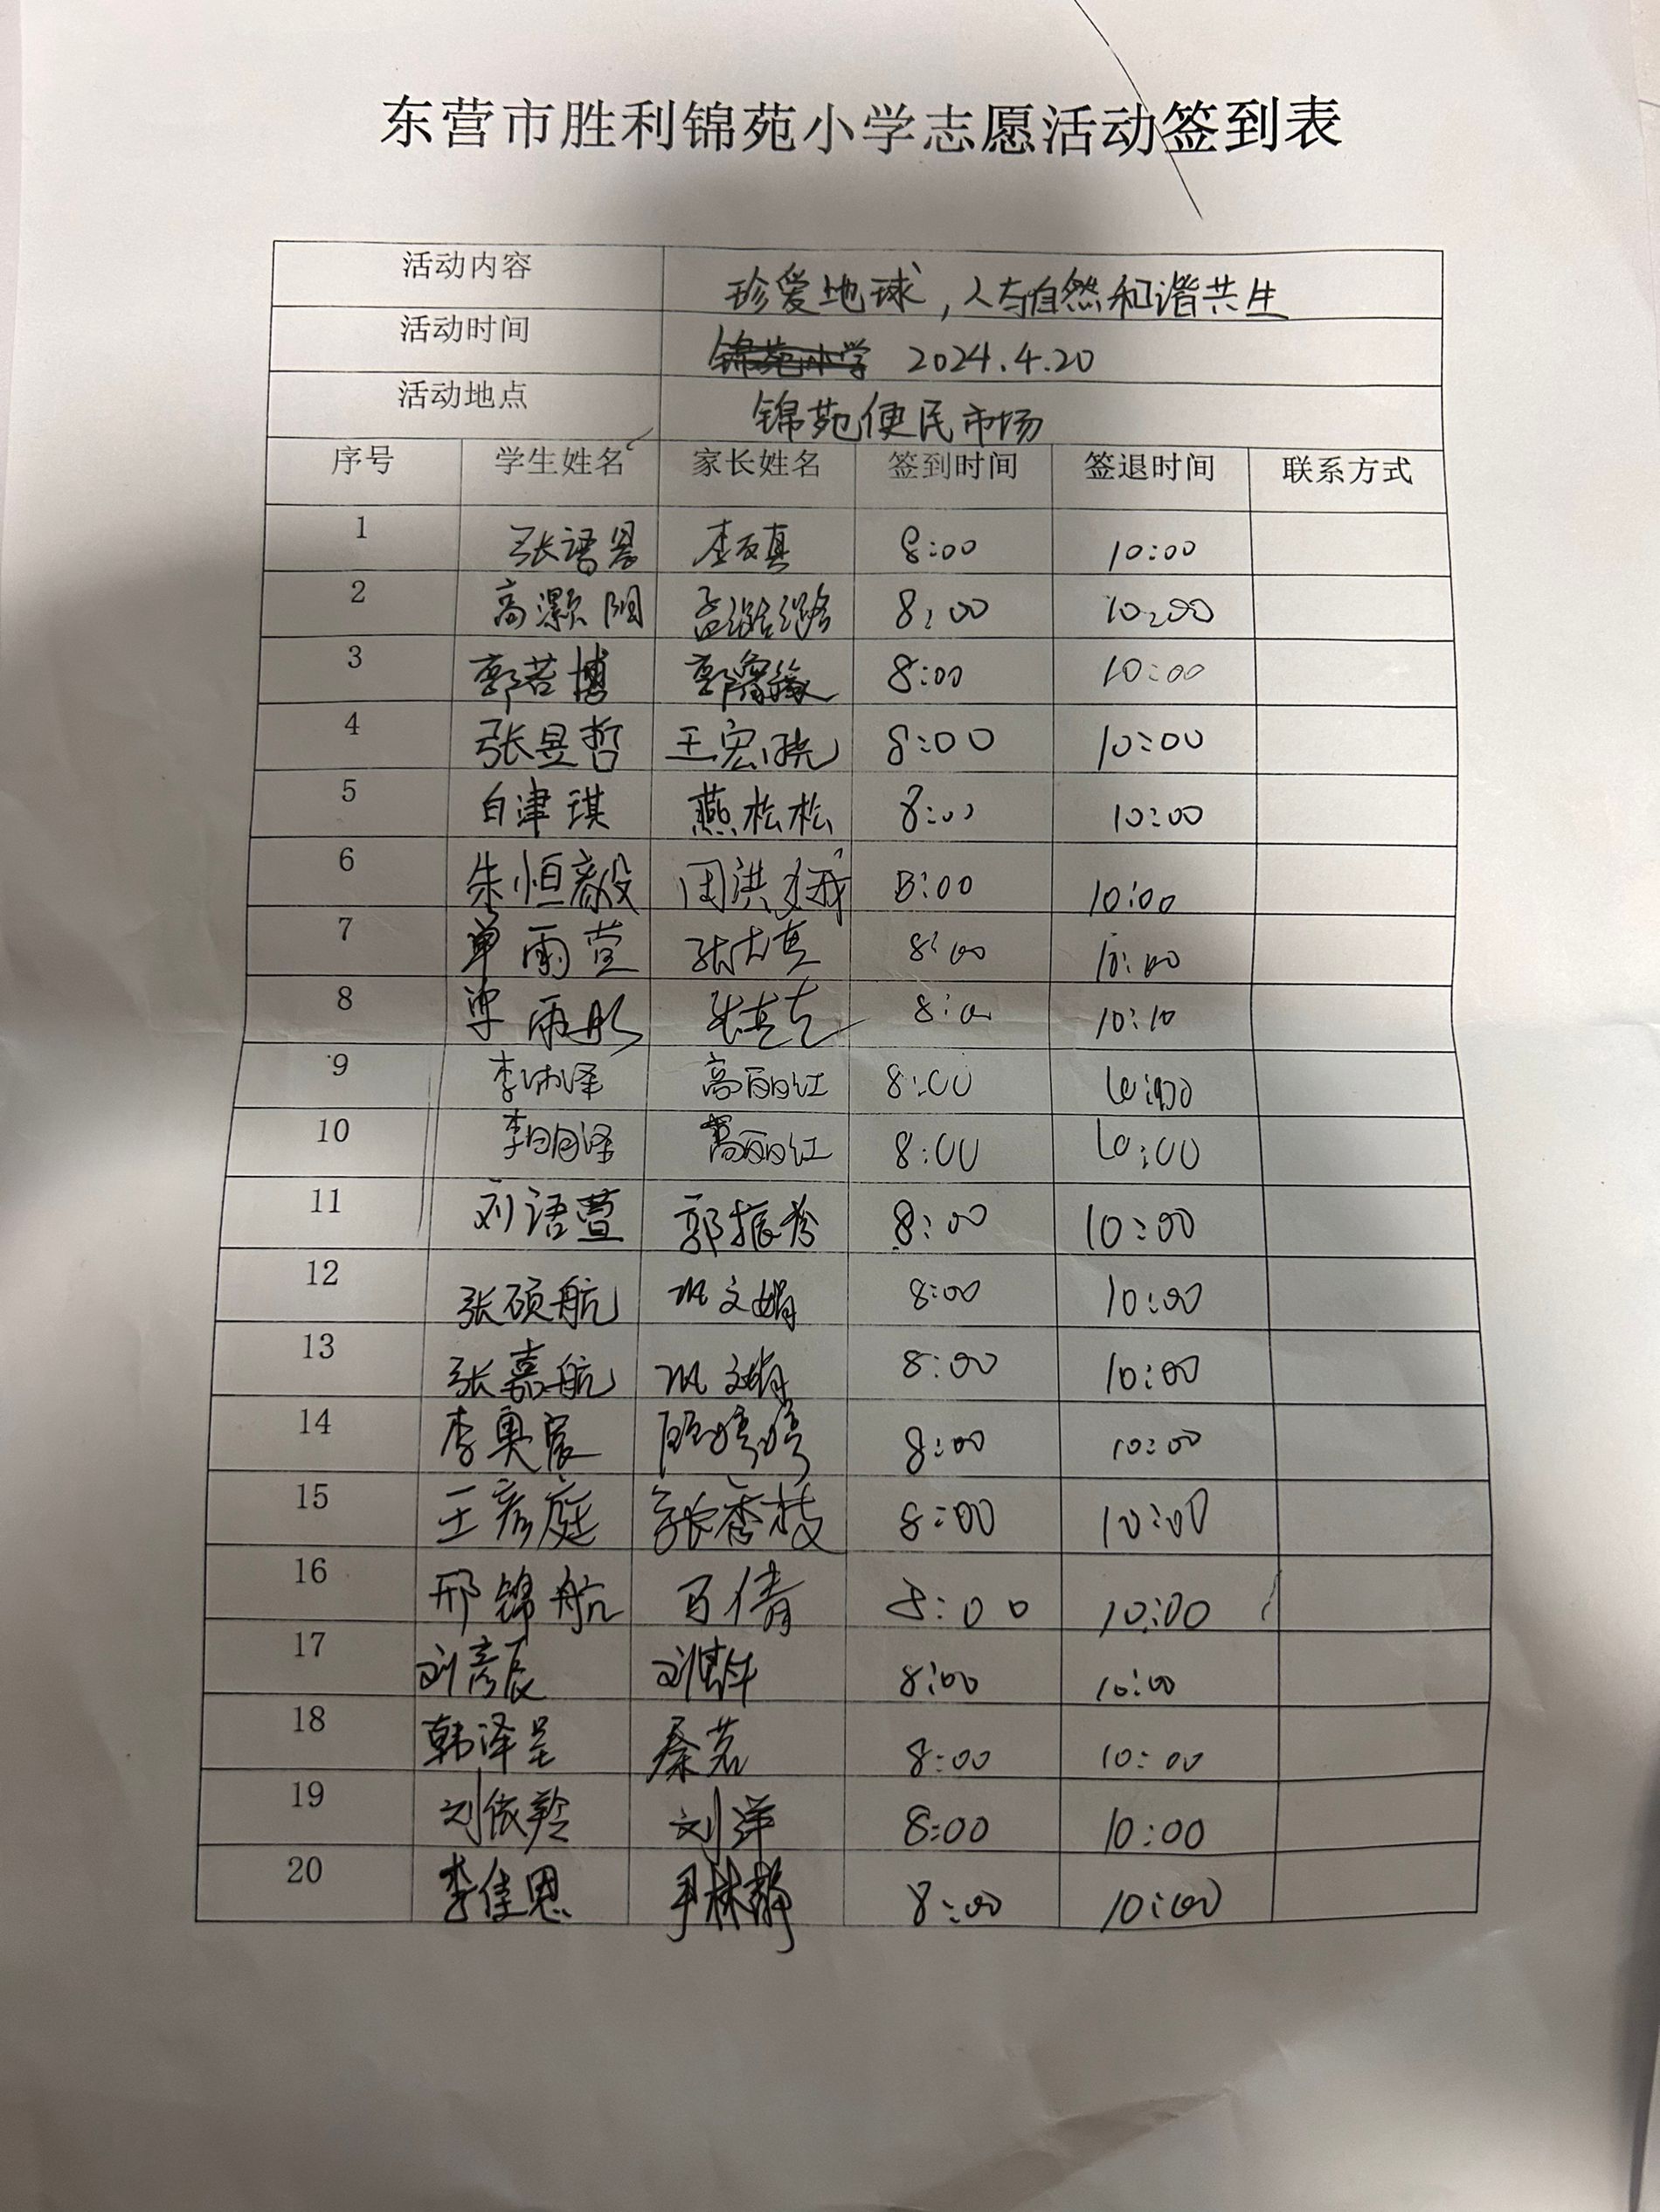 东营市胜利锦苑小学志愿活动签到表
活动内容 珍爱地球，人与自然和谐共生
活动时间 锦苑小学 2024.4.20
活动地点 锦苑便民市场
序号 学生姓名 家长姓名 签到时间 签退时间 联系方式
1 张语 8:00 10:00
2 高灏阳 孟潞潞 8:00 10:00
3 郭若博 8:00 10:00
4 张昱哲 王宏晓 8:00 10:00
5 白津琪 燕松松 8:00 10:00
6 朱恒毅 周洪娥 8:00 10:00
7 单雨萱 8:00 10:00
8 单雨彤 8:00 10:10
9 李沐泽 高丽红 8:00 10:00
10 李明泽 高丽红 8:00 10:00
11 刘语萱 郭振秀 8:00 10:00
12 张硕航 巩文娟 8:00 10:00
13 张嘉航 巩文娟 8:00 10:00
14 李奥宸 8:00 10:00
15 王彦庭 张秀枝 8:00 10:00
16 邢锦航 倩 8:00 10:00
17 刘彦辰 8:00 10:00
18 韩泽呈 秦茗 8:00 10:00
19 刘依 刘洋 8:00 10:00
20 李佳恩 静 8:00 10:00